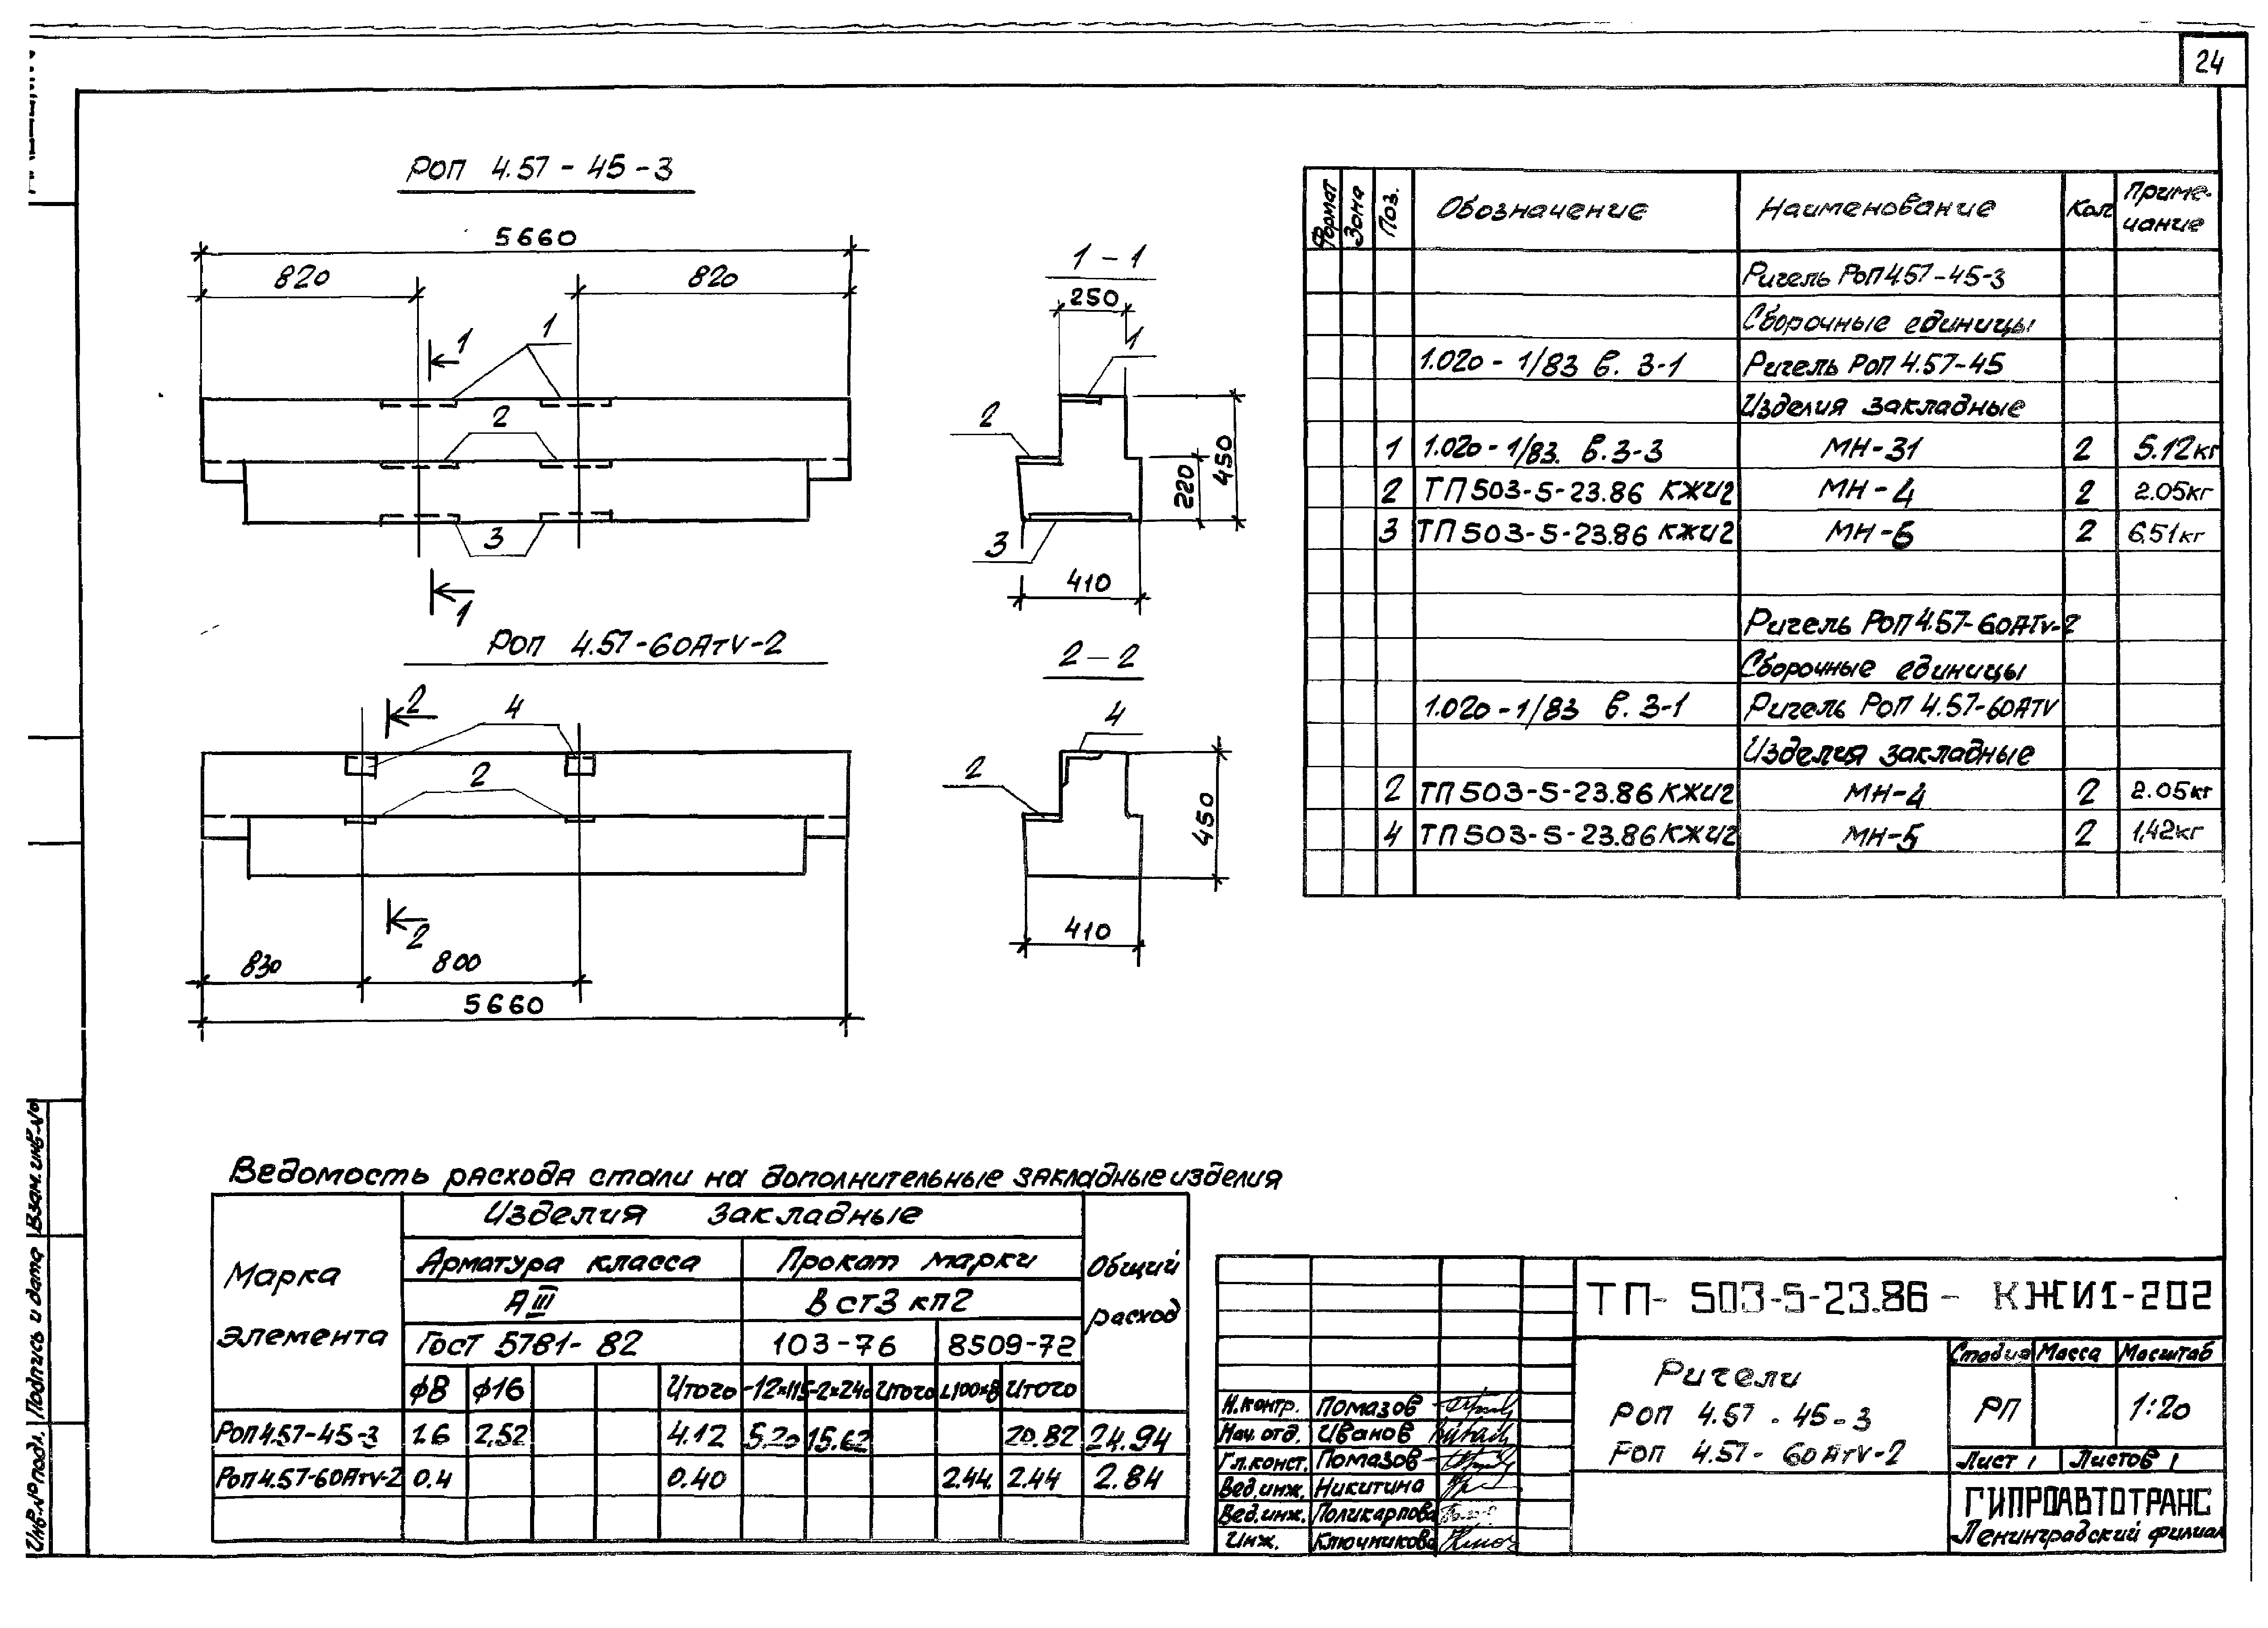 24
Роп 4.57-45-3
5660
820
820
1
1
2
3
1
1-1
250
1
2
450
220
3
410
Роп 4.57-60АтV-2
2
4
2
2
830
800
5660
2-2
4
2
450
410
Формат Зона Поз. Обозначение Наименование Кол Приме-
чание
Ригель Роп 4.57-45-3
Сборочные единицы
1.020-1/83 в. 3-1 Ригель Роп 4.57-45
Изделия закладные
1 1.020-1/83. в.3-3 МН-31 2 5.12кг
2 ТП503-5-23.86 КЖИ2 МН-4 2 2.05кг
3 ТП503-5-23.86 КЖИ2 МН-6 2 6,51кг
Ригель Роп 4.57-60АТV-2
Сборочные единицы
1.020-1/83 в. 3-1 Ригель Роп 4.57-60АТV
Изделия закладные
2 ТП503-5-23.86 КЖИ2 МН-4 2 2.05кг
4 ТП503-5-23.86 КЖИ2 МН-5 2 1,42кг
Ведомость расхода стали на дополнительные закладные изделия
Марка
элемента
Изделия закладные
Общий
расход
Арматура класса Прокат марки
АIII В ст3 кп2
Гост 5781-82 103-76 8509-72
ф8 ф16 Итого -12×115 Итого L100×8 Итого
Роп 4.57-45-3 1.6 2.52 4.12 5.20 15.62 20.82 24.94
Роп 4.57-60Атv-2 0.4 0.40 2.44. 2.44 2.84
ТП- 503-5-23.86 - КЖИ1-202
Ригели
Роп 4.57-45-3
Роп 4.57-60АтV-2
Стадия Масса Масштаб
РП 1:20
Лист 1 Листов 1
ГИПРОАВТОТРАНС
Ленинградский филиал
Н.контр. Помазов
Нач. отд. Иванов
Гл.конст. Помазов
Вед.инж. Никитина
Вед.инж. Поликарпова
Инж. Ключникова
Взам.инв.№
Подпись и дата
Инв.№ подл.